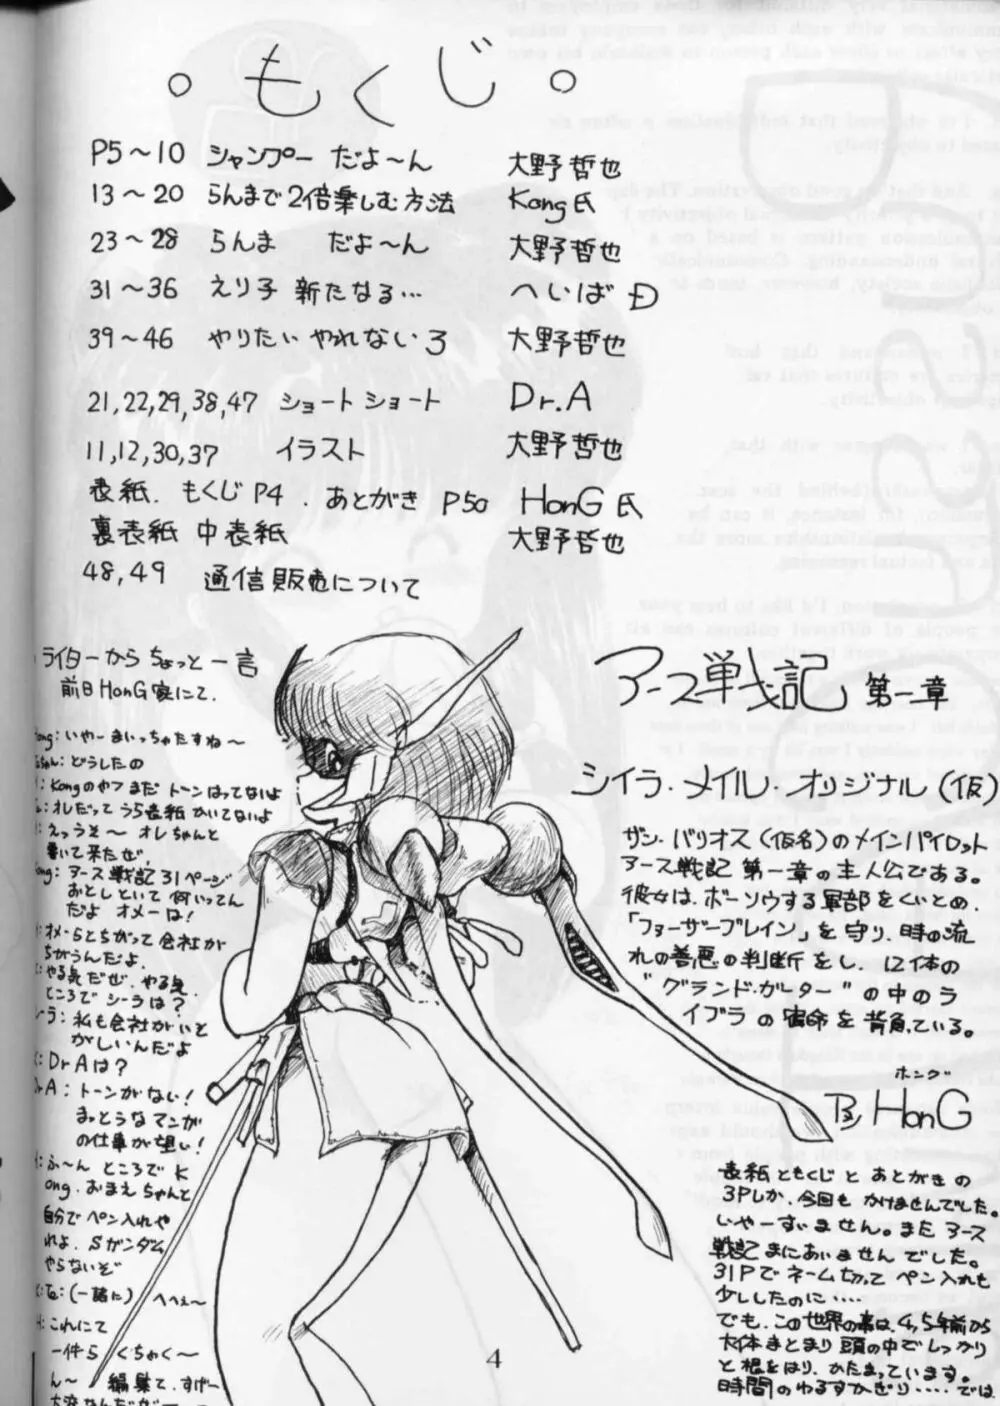 。もくじ。
P5～10 シャンプー だよ～ん 大野哲也
13～20 らんまで2倍楽しむ方法 Kong氏
23～28 らんま だよ～ん 大野哲也
31～36 えり子 新たなる… へいばÐ
39～46 やりたい やれない 3 大野哲也
21,22,29,38,47 ショートショート Dr.A
11,12,30,37 イラスト 大野哲也
表紙. もくじP4. あとがき P50 HonG氏
裏表紙 中表紙 大野哲也
48,49 通信販売について
ライターからちょっと一言
前日HonG家にて.
ong: いやーまいっちゃたすね～
ちゃん: どうしたの
: Kongのやつまだトーンはってないよ
: オレだってうら表紙かいてないよ
: えっうそ～ オレちゃんと
書いて来たぜ,
ong: アース戦記31ページ
おとしといて何いってん
だよ オメーは!
: オメーらとちがって会社が
ちがうんだよ.
: やる気だぜ. やる気.
ところでシーラは?
ーラ: 私も会社がいそ
がしいんだよ
: DrAは?
DrA: トーンがない!
まっとうなマンガ
の仕事が望い!
: ふ～ん ところでK
ong. おまえちゃんと
自分でペン入れや
れよ. Sガンダム
やらないぞ
: (一諸に) へへぇ～
H: これにて
一件らくちゃく～
ん～ 編集て. すげー
大変なんだが
アース戦記 第一章
シイラ・メイル・オリジナル(仮)
ザン・バリオス(仮名)のメインパイロット
アース戦記 第一章の主人公である。
彼女は、ボーソウする軍部をくいとめ、
「ファーザーブレイン」を守り、時の流
れの善悪の判断をし、12体の
"グランド・ガーター"の中のラ
イブラの宿命を背負っている。
ホング
By HonG
表紙ともくじとあとがきの
3Pしか、今回もかけませんでした。
いやーすいません。またアース
戦記まにあいませんでした。
31Pでネーム切ってペン入れも
少ししたのに‥‥
でも、この世界の事は、4,5年前から
大体まとまり頭の中でしっかり
と根をはり、かたまっています。
時間のゆるすかぎり‥‥では
4